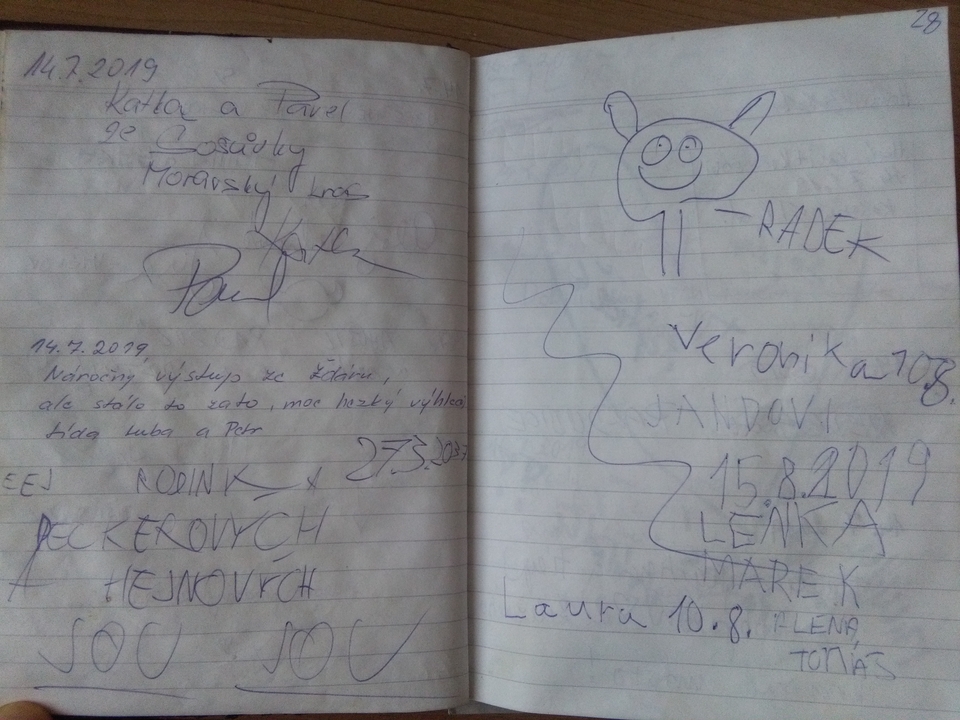 14.7.2019
Katka a Pavel
ze Sosůvky
Moravský kras
Katka
Pavel
14.7.2019,
Náročný výstup ze Žďáru,
ale stálo to zato, moc hezký výhled
Líba a Petr
27.3.2037
EEJ RODINKA
PECKEROVÝCH
A HEJNOVÝCH
JOU JOU
28
RADEK
Veronika 10.8.
JANDOVI
15.8.2019
LENKA
MAREK
Laura 10.8. ALENA,
TOMÁŠ